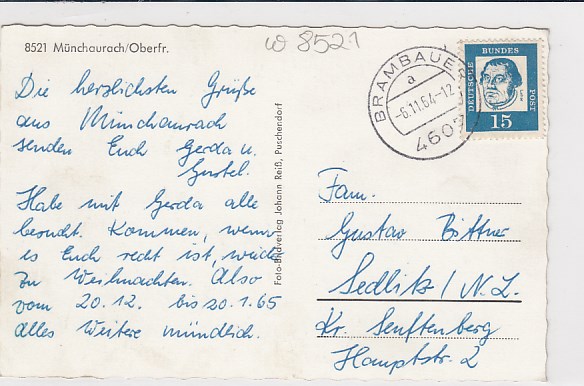 8521 Münchaurach/Oberfr.
W 8521
BRAMBAUER
a
-6.11.64-12
4607
DEUTSCHE BUNDESPOST
15
Die herzlichsten Grüße
aus Münchaurach
senden Euch Gerda u.
Gustel.
Habe mit Gerda alle
besucht. Kommen, wenn
es Euch recht ist,
zu Weihnachten. Also
vom 20.12. bis 20.1.65
alles Weitere mündlich.
Foto-Bildverlag Johann Reiß, Puschendorf
Fam.
Gustav Bittner
Sedlitz / N.L.
Kr. Senftenberg
Hauptstr. 2